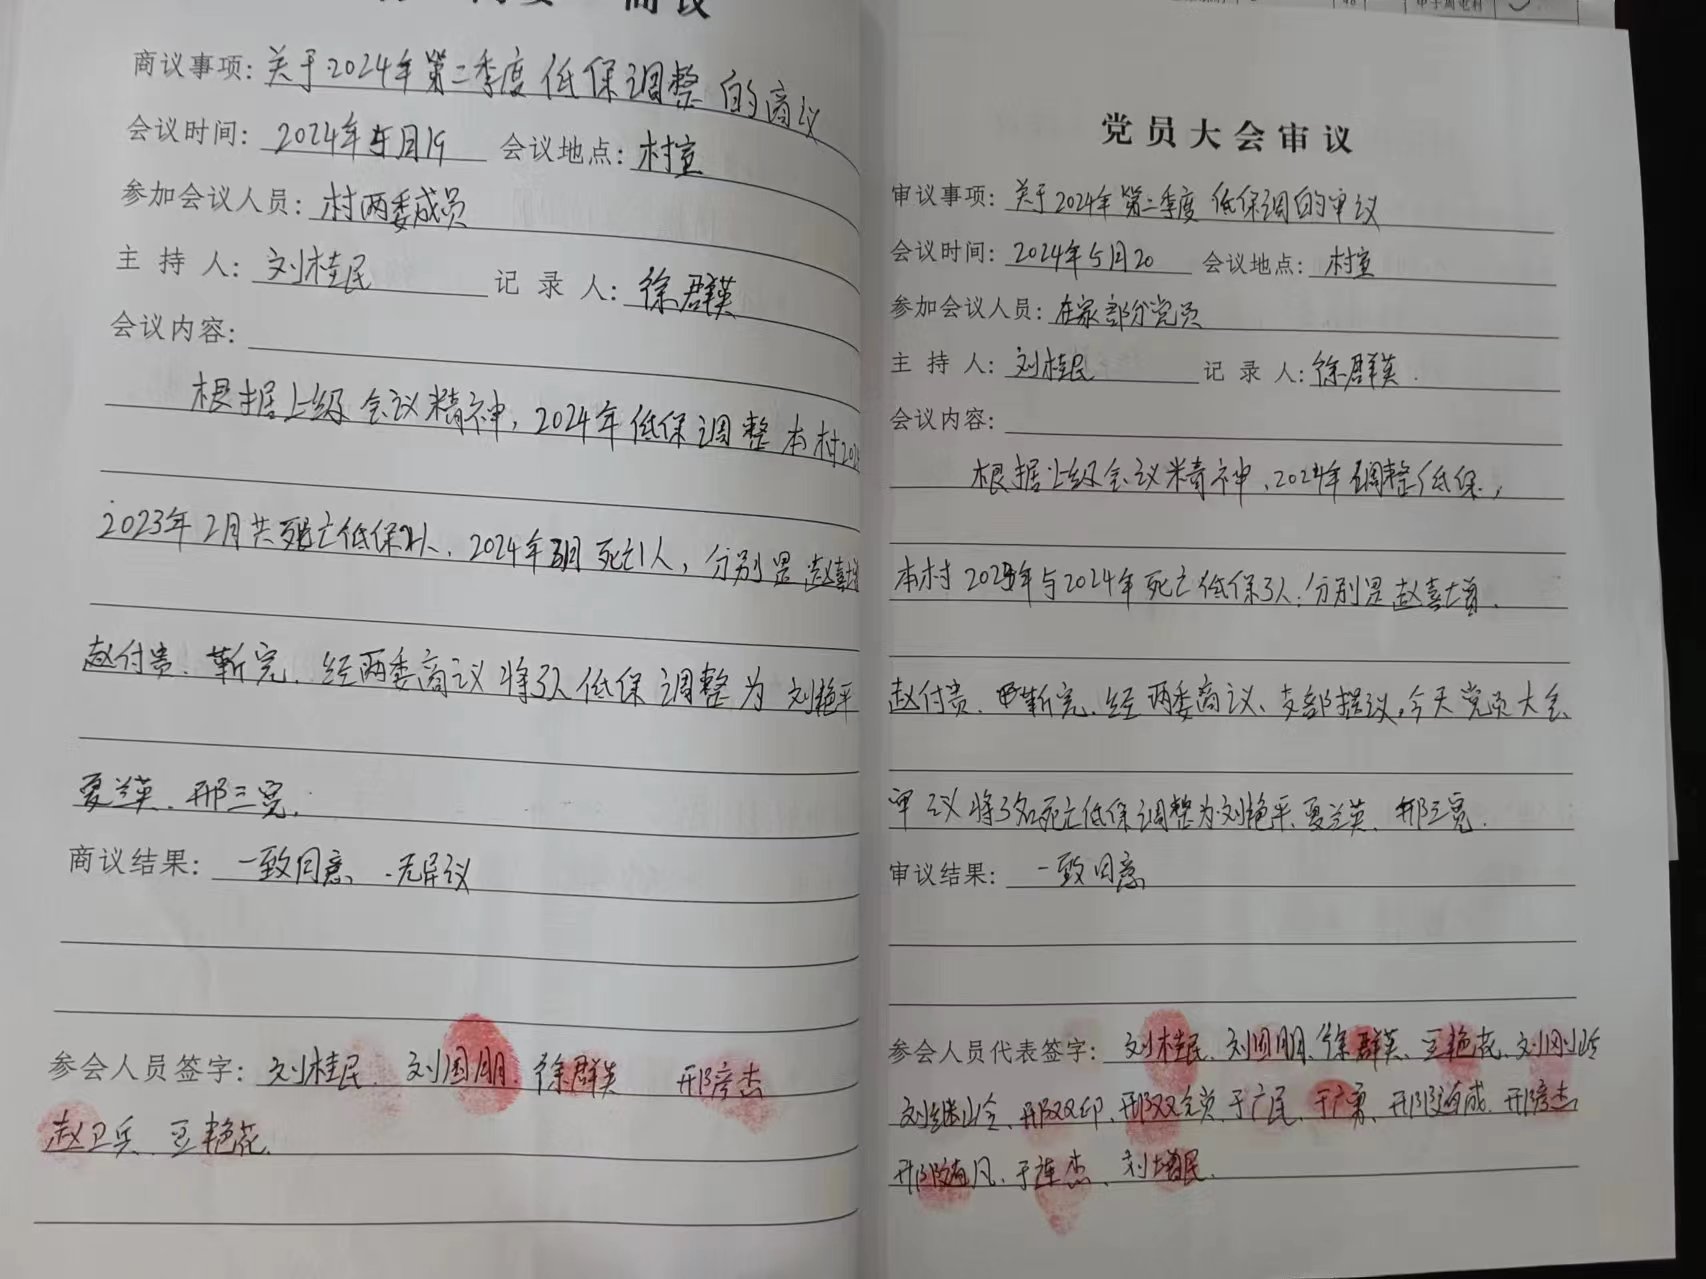 商议
商议事项：关于2024年第二季度低保调整的商议
会议时间：2024年5月19 会议地点：村室
参加会议人员：村两委成员
主持人：刘桂民 记录人：徐群英
会议内容：
根据上级会议精神，2024年低保调整本村202
2023年2月共死亡低保2人、2024年3月死亡1人，分别是赵喜增
赵付贵、靳完、经两委商议将3人低保调整为刘艳平
夏兰英、邢三宽，
商议结果：一致同意、无异议
参会人员签字：刘桂民、刘国朋、徐群英 邢彦杰
赵卫兵、王艳花、
党员大会审议
审议事项：关于2024年第二季度低保调的审议
会议时间：2024年5月20 会议地点：村室
参加会议人员：在家部分党员
主持人：刘桂民 记录人：徐群英.
会议内容：
根据上级会议精神、2024年调整低保，
本村2023年与2024年死亡低保3人：分别是赵喜增、
赵付贵、靳完、经两委商议、支部提议，今天党员大会
审议将3名死亡低保调整为刘艳平、夏兰英、邢三宽.
审议结果：一致同意
参会人员代表签字：刘桂民、刘国朋、徐群英、王艳花、刘刚岭
邢双印、于广民、于广勇、邢彦杰
于连杰、刘增民.